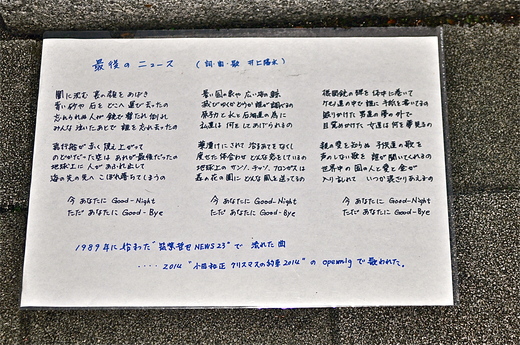 最後のニュース (詞・曲・歌 井上陽水)
闇に沈む 裏の顔をあばき
青い砂や石をどこへ運び去ったの
忘れられぬ人が銃で撃たれ倒れ
みんな泣いたあとで誰を忘れ去ったの
飛行船が赤く燃え上がって
のどかだった空はあれが最後だったの
地球上に人があふれ出して
海の先の先へこぼれ落ちてしまうの
今 あなたに Good-Night
ただ あなたに Good-Bye
暑い国の象や広い海の鯨
滅びゆくかどうか誰が調べるの
原子力と水と石油達の為に
私達は何をしてあげられるの
薬漬けにされて治るあてをなくし
痩せた体合わせどんな恋をしているの
地球上のサンソ、チッソ、フロンガスは
森の花の園にどんな風を送ってるの
今 あなたに Good-Night
ただ あなたに Good-Bye
機関銃の弾を体中に巻いて
ケモノ達の中で誰に手紙を書いてるの
眠りかけた男達の夢の外で
目覚めかけた女達は何を夢見るの
親の愛を知らぬ子供達の歌を
声のしない歌を誰が聞いてくれるの
世界中の国の人と愛と金が
入り乱れていつか混ざりあえるの
今 あなたに Good-Night
ただ あなたに Good-Bye
1989年に始まった"筑紫哲也NEWS23"で流れた曲
・・・・2014 "小田和正 クリスマスの約束2014"のopeningで歌われた。